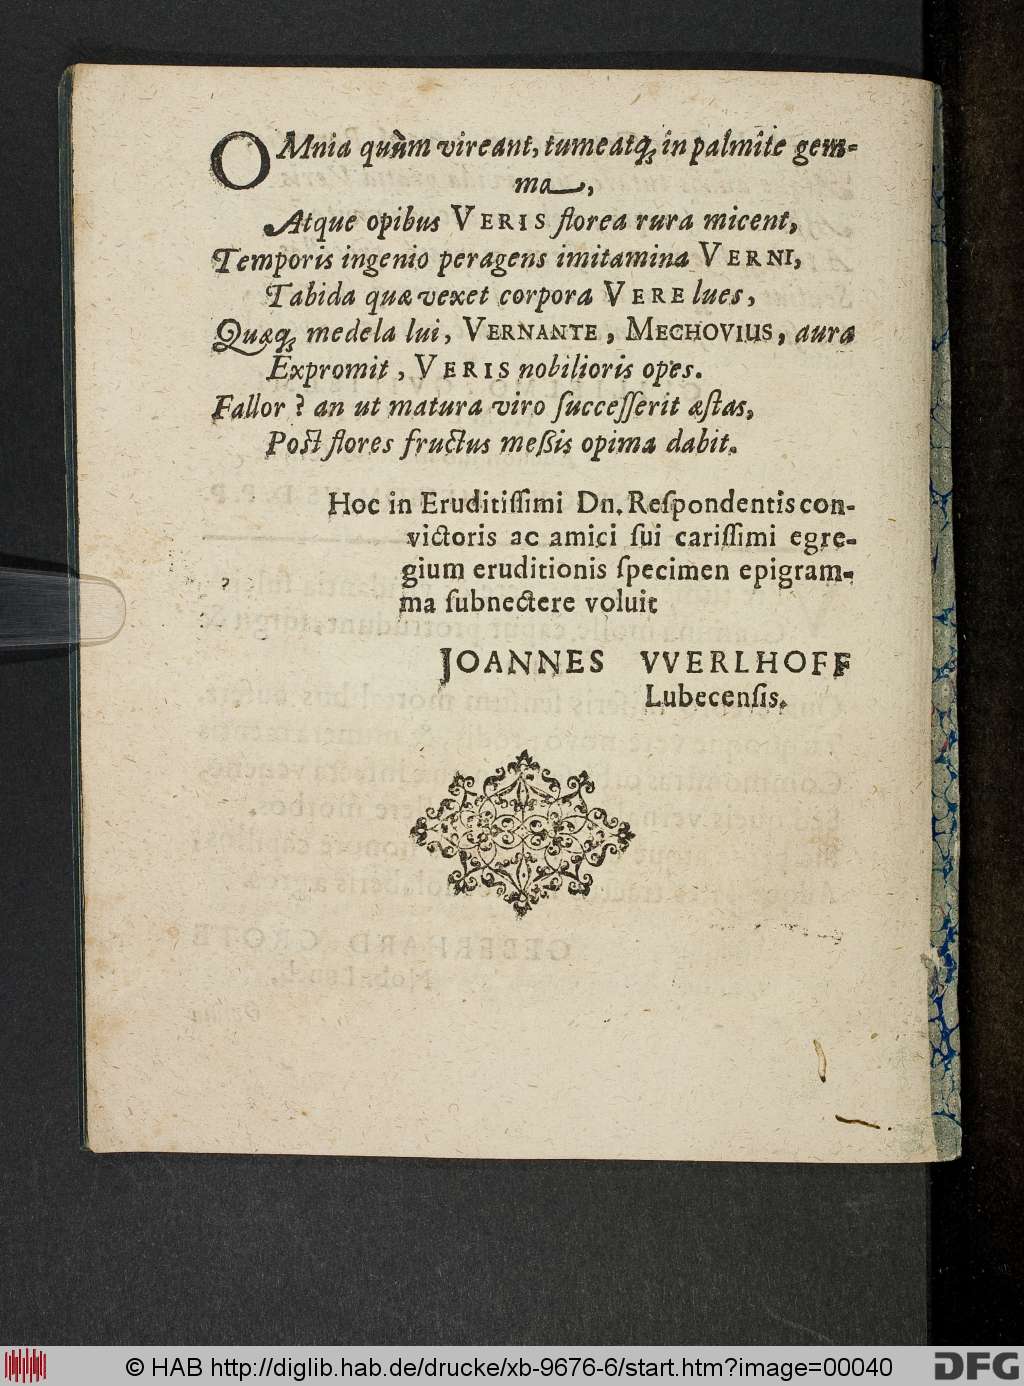 OMnia quùm vireant, tumeatq; in palmite gem-
ma,
Atque opibus VERIS florea rura micent,
Temporis ingenio peragens imitamina VERNI,
Tabida quæ vexet corpora VERE lues,
Quæq; medela lui, VERNANTE, MECHOVIUS, aura
Expromit, VERIS nobilioris opes.
Fallor? an ut matura viro ſucceſſerit æſtas,
Poſt flores fructus meßis opima dabit.
Hoc in Eruditiſſimi Dn. Reſpondentis con-
victoris ac amici ſui cariſſimi egre-
gium eruditionis ſpecimen epigram-
ma ſubnectere voluit
JOANNES VVERLHOFF
Lubecenſis.
© HAB http://diglib.hab.de/drucke/xb-9676-6/start.htm?image=00040
DFG